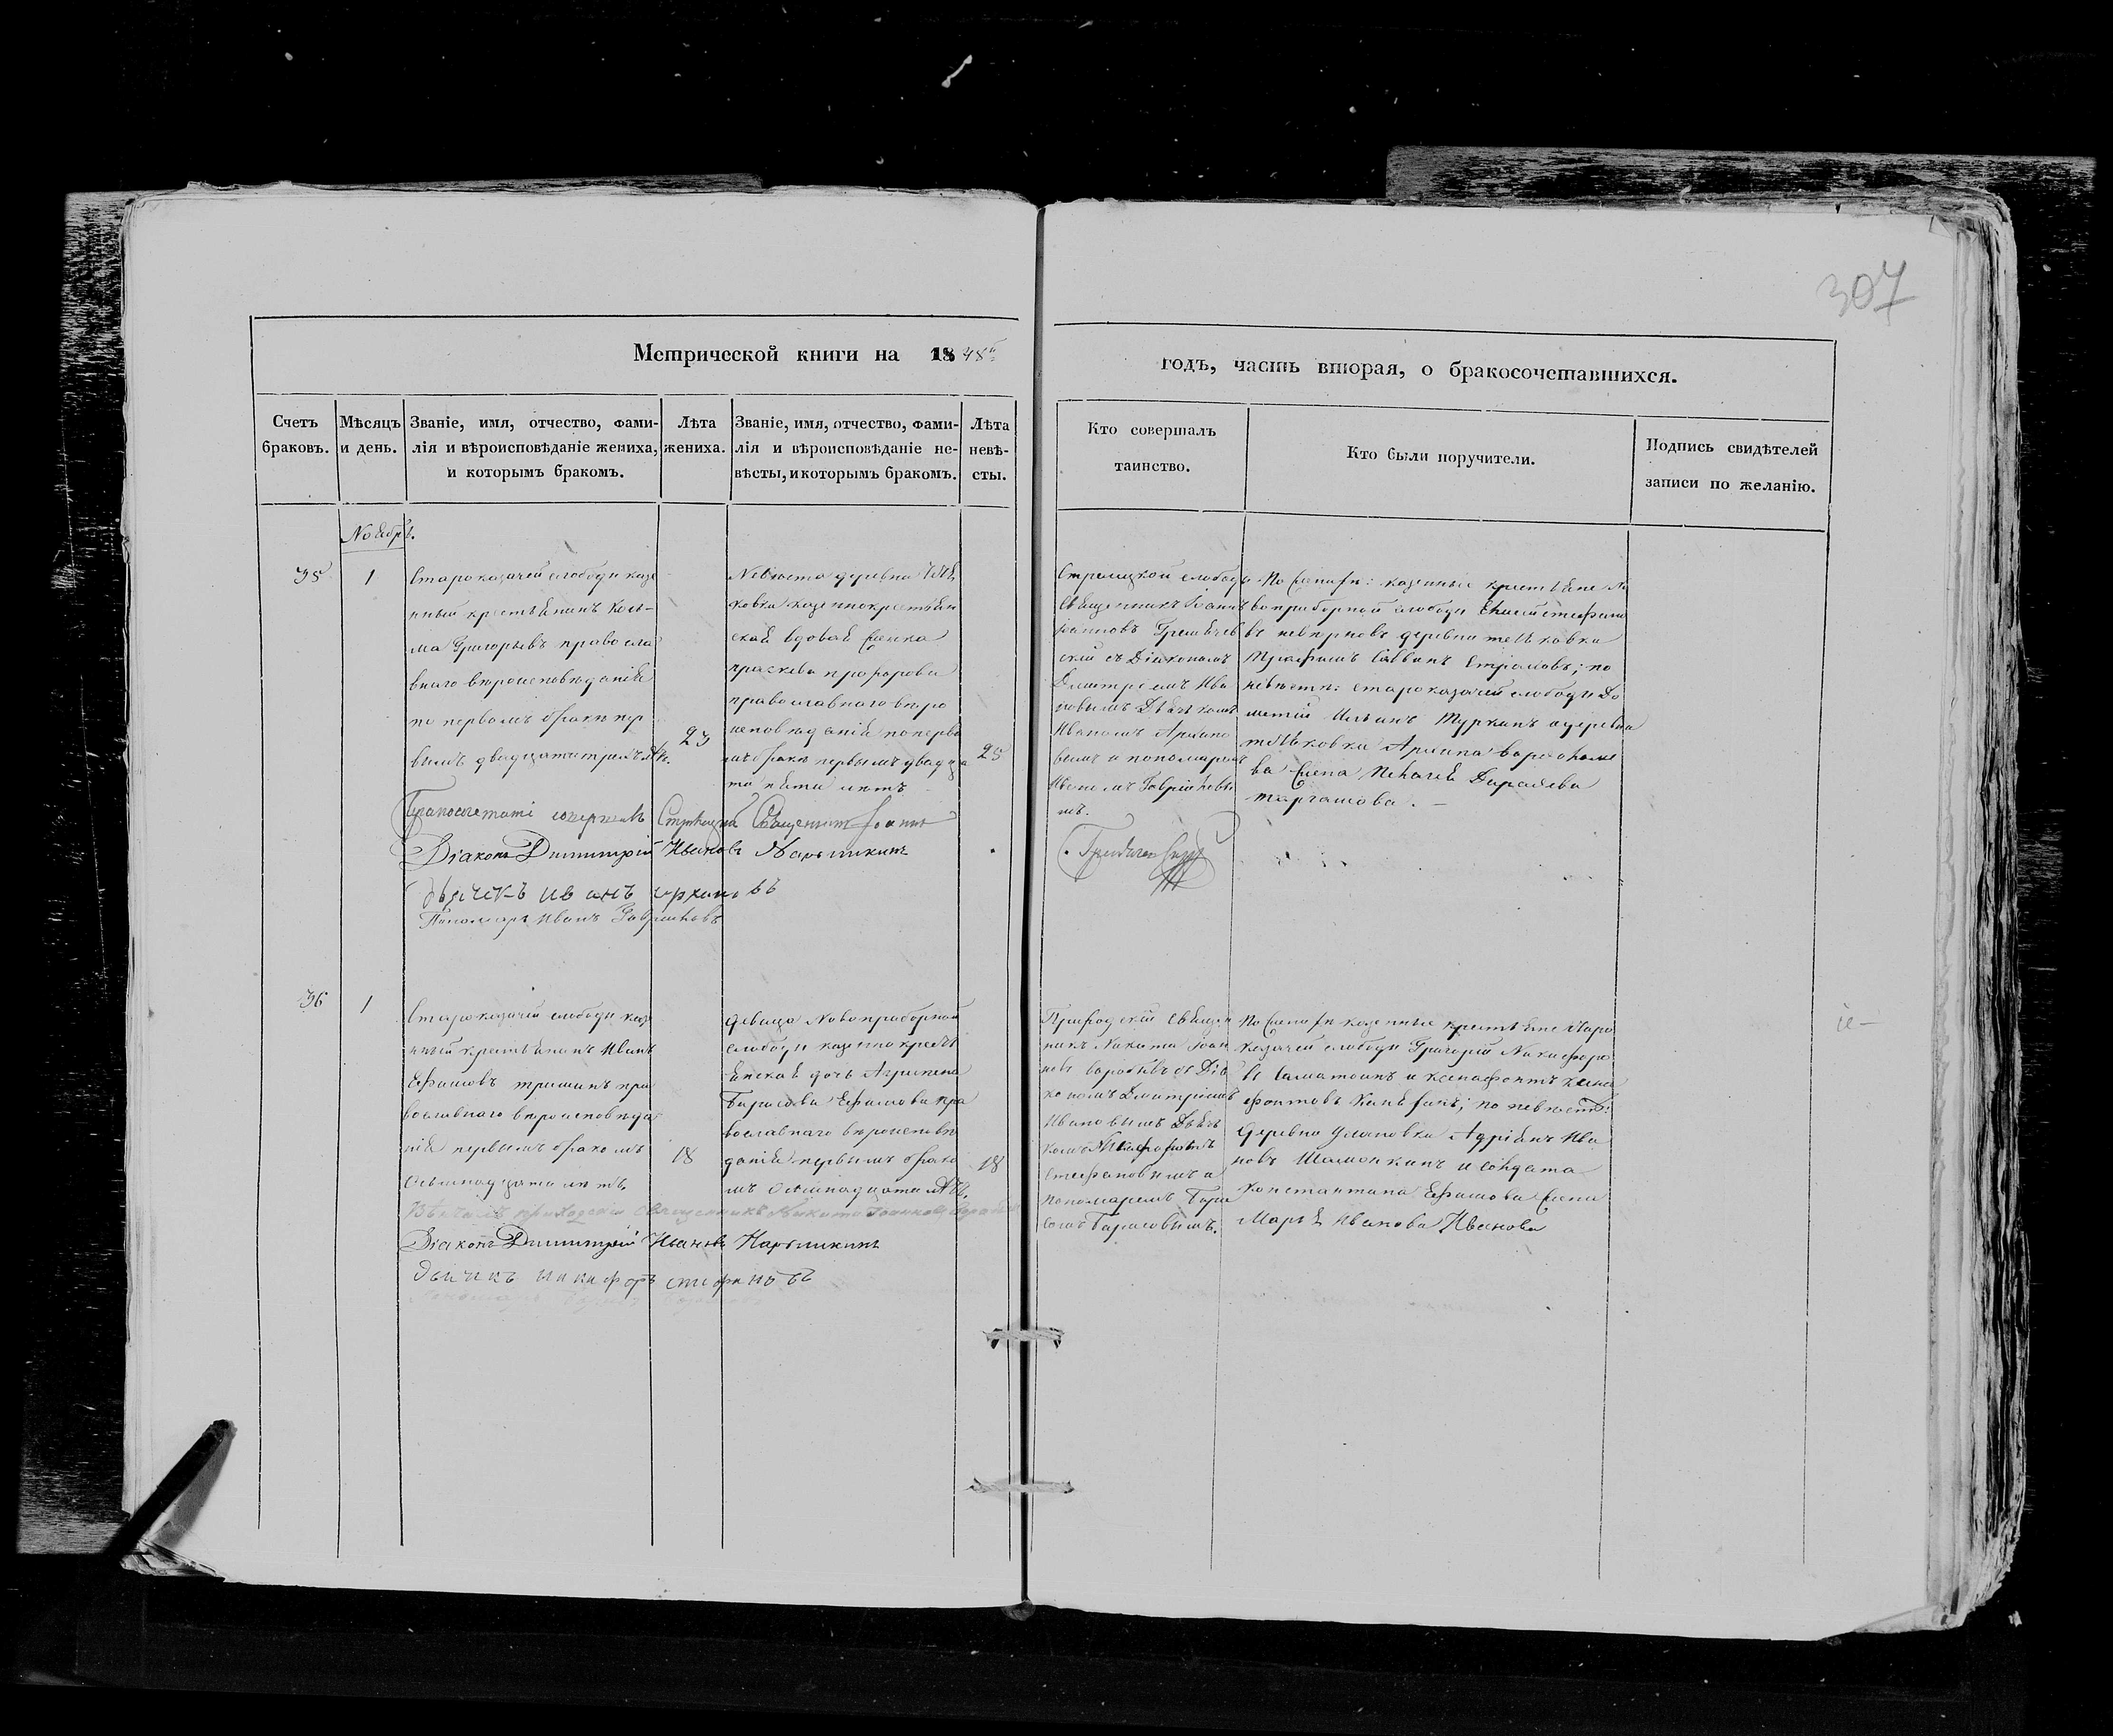 307
Метрической книги на 1848й
годъ, часть вторая, о бракосочетавшихся.
Счетъ
браковъ.
Мѣсяцъ
и день.
Званіе, имя, отчество, фами-
лія и вѣроисповѣданіе жениха,
и которымъ бракомъ.
Лѣта
жениха.
Званіе, имя, отчество, фами-
лія и вѣроисповѣданіе не-
вѣсты, и которымъ бракомъ.
Лѣта
невѣ-
сты.
Кто совершалъ
таинство.
Кто были поручители.
Подпись свидѣтелей
записи по желанію.
Ноябрь.
35
1
Староказачей слободы казе
нный крестьянинъ Козь-
ма Григорьевъ правосла
внаго вѣроисповѣданія
по первомъ бракѣ пер
вымъ двадцати трехъ лѣтъ.
23
Невѣста деревни
ковки казеннокрестьян
ская вдовая женка
праскева
православнаго вѣро
исповѣданія по перво
мъ бракѣ первымъ двадца
ти пяти лѣтъ
25
Стрелецкой слободы
Священникъ Іоаннъ
Іоанновъ
скій съ Діакономъ
Дмитріемъ Ива
новымъ Дьячкомъ
Иваномъ Архипо
вымъ и пономаремъ
Иваномъ Гавріиловы
мъ.
По женихѣ: казенные крестьяне Но
воприборной слободы
въ деревни
Трофимъ Саввинъ по
невѣстѣ: староказачей слободы До
метій Ильинъ Туркинъ и деревни
Архипа
ва жена Пелагея
Бракосочетаніе совершалъ Стрѣлецкій Священникъ Іоаннъ
Діаконъ Димитрій Ивановъ Нарышкинъ
дьячекъ иванъ архиповъ
Пономарь Иванъ Гавріиловъ
36
1
Староказачей слободы казе
нный крестьянинъ Иванъ
Ефимовъ тришинъ пра
вославнаго вѣроисповѣда
нія первымъ бракомъ
Осьмнадцати лѣтъ.
18
девица Новоприборной
слободы казеннокресть
янская дочь Агрипена
Тарасова Ефимова пра
вославнаго вѣроисповѣ
данія первымъ брако
мъ Осьмнадцати лѣтъ.
18
Приходскій Священ
никъ Никита Іоан
новъ съ Діа
кономъ Дмитріемъ
Ивановымъ Дьяч
комъ Никифоромъ
Стефановымъ и
пономаремъ
Тарасовымъ.
По женихѣ казенные крестьяне Старо
казачей слободы Григорій Никифоро
въ и ксенофонтъ ксено
фонтовъ по невѣстѣ:
деревни Ульяновки Адріанъ Ива
новъ Шамонкинъ и солдата
Константина Ефимова жена
Марья Иванова Иванова
Вѣнчалъ приходскій священникъ Никита Іоанновъ
Діаконъ Димитрій Ивановъ Нарышкинъ
дьячикъ никифоръ стефановъ